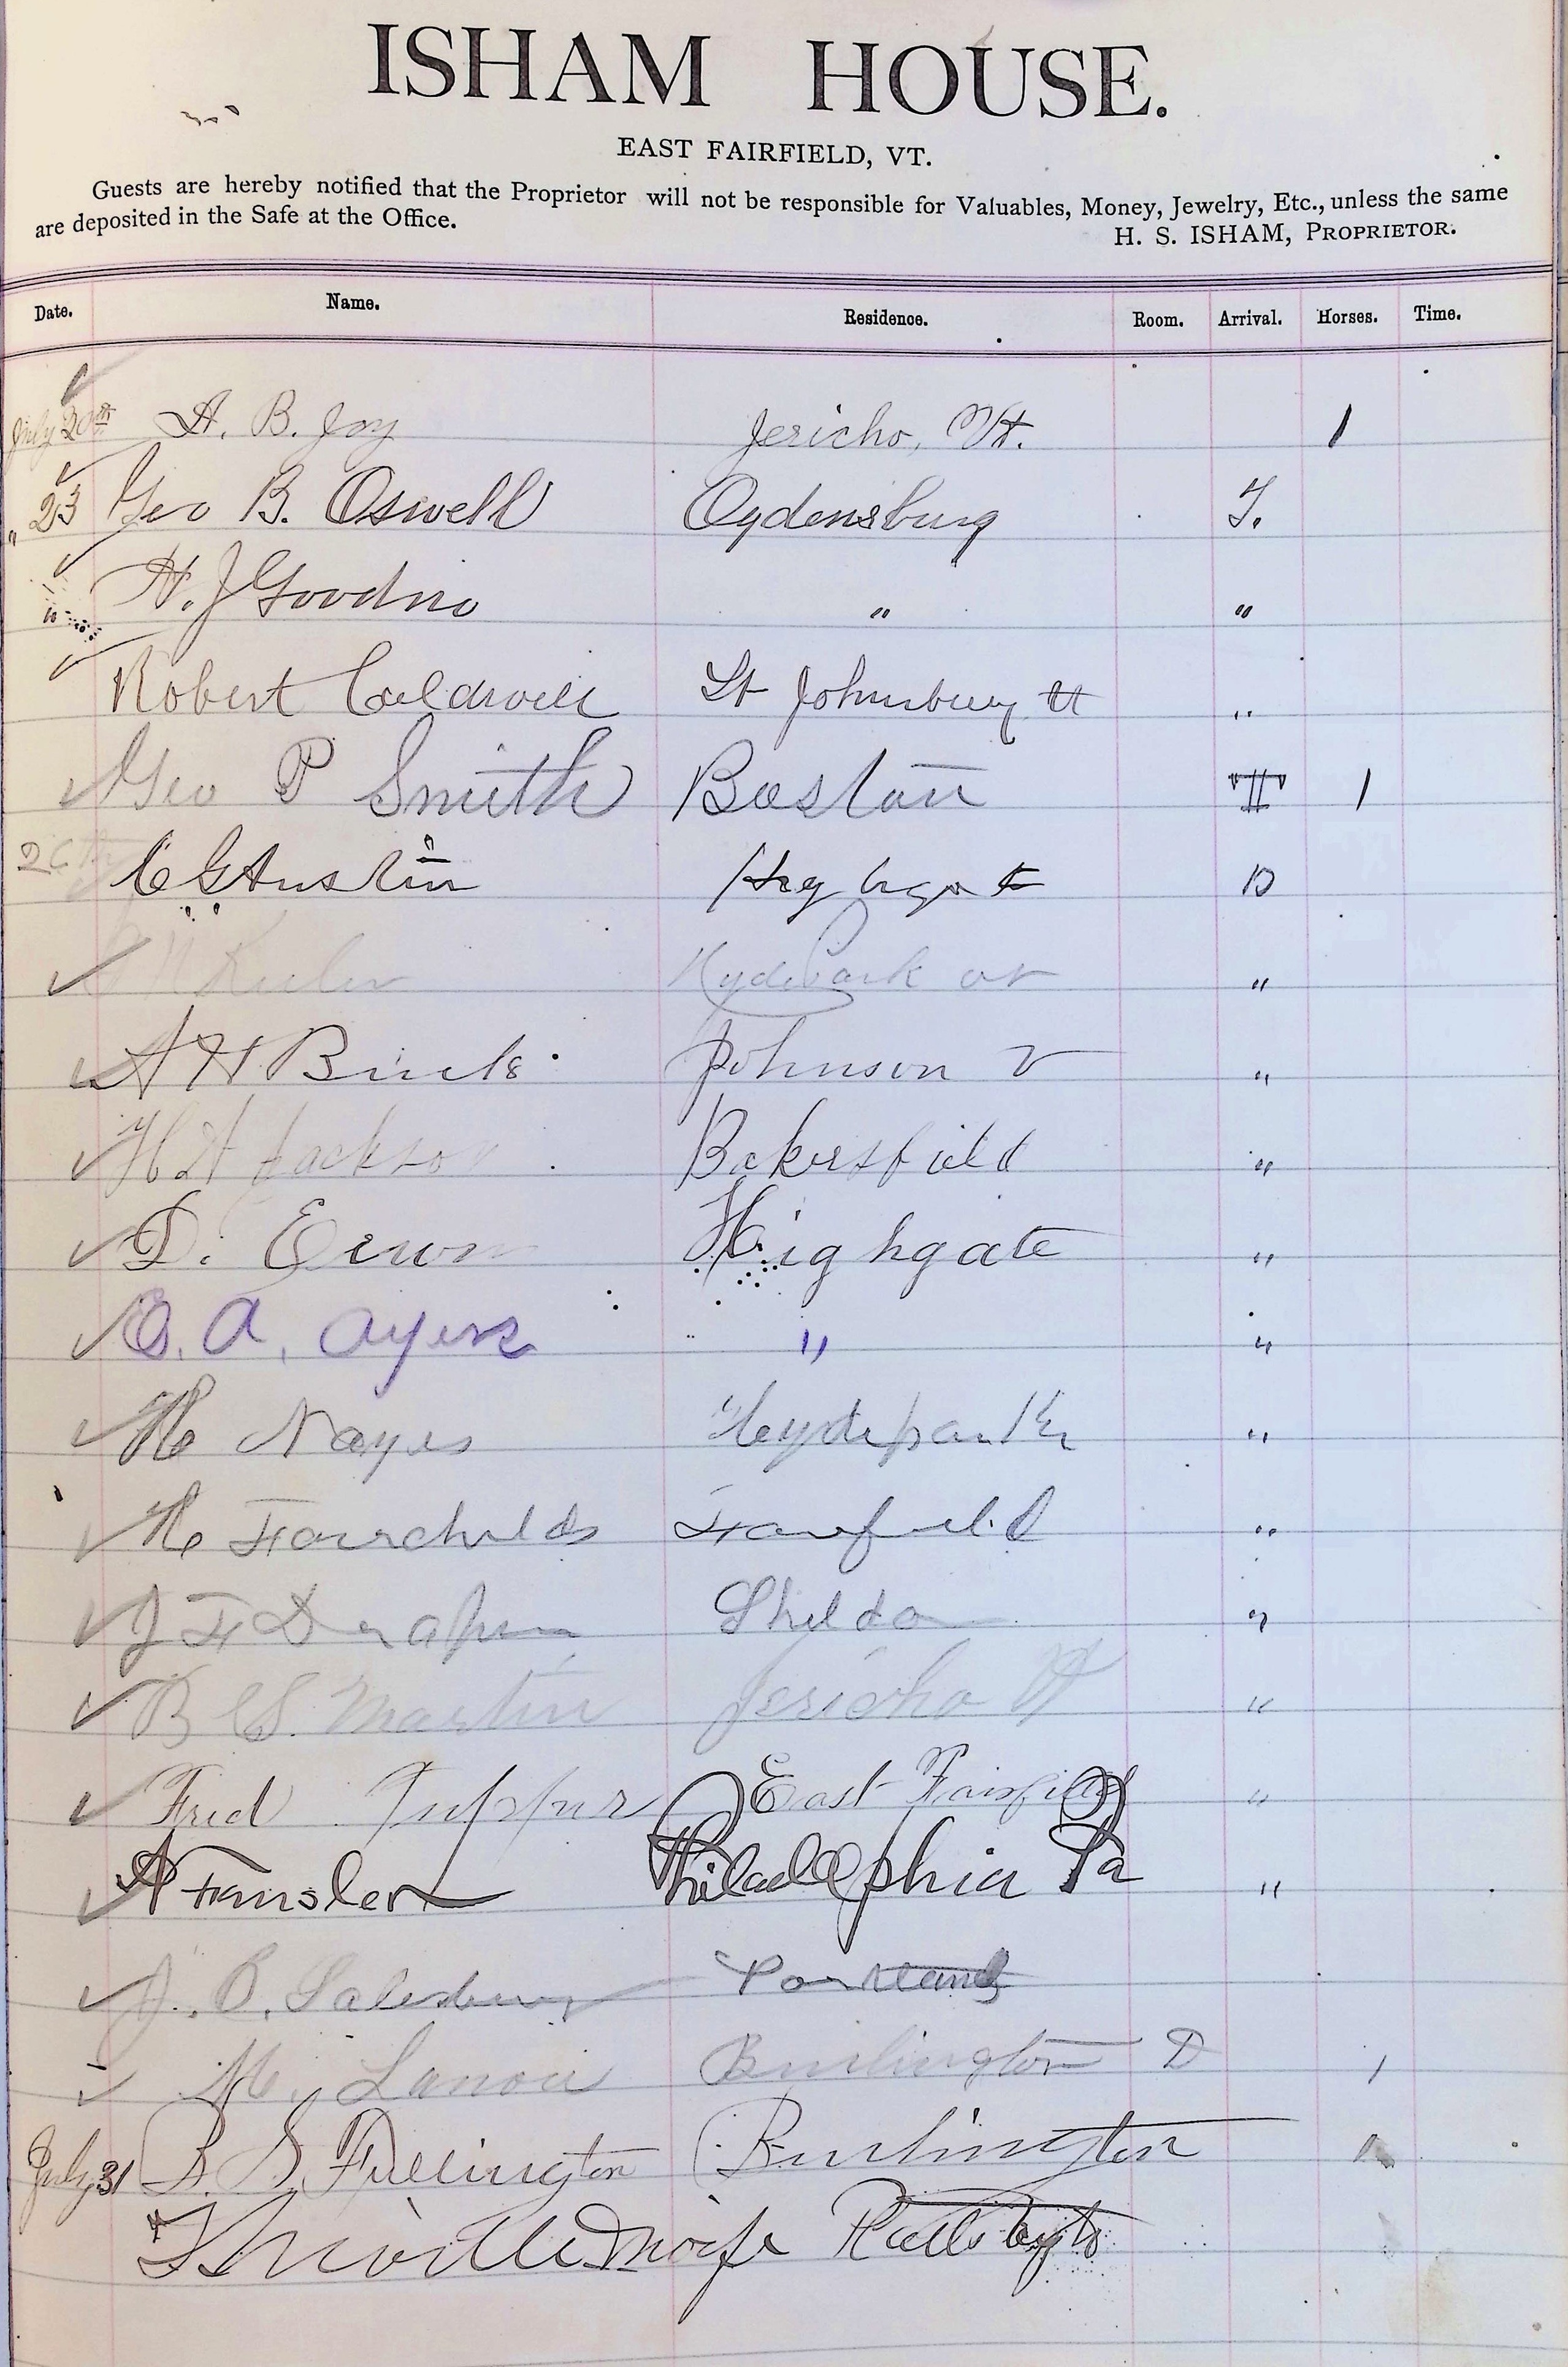 ISHAM HOUSE.
EAST FAIRFIELD, VT.
Guests are hereby notified that the Proprietor will not be responsible for Valuables, Money, Jewelry, Etc., unless the same
are deposited in the Safe at the Office.
H. S. ISHAM, PROPRIETOR.
Date. Name. Residence. Room. Arrival. Horses. Time.
July 20th A. B. Joy Jericho, Vt. 1
" 23 Geo B. Oswell Ogdensburg T.
" H. J Goodno " "
Robert Caldwell St Johnsbury Vt "
Geo P Smith Boston 1
26th C G Austin Highgate D
Hydepark "
A H Johnson V "
H H Jackson Bakersfield "
D. Highgate "
A. Ayers " "
H Noyes Hydepark "
H Fairchilds Fairfield "
J F Sheldon "
B C S. Martin Jericho Vt "
Fred Tupper East Fairfield "
A Fansler Philadelphia Pa "
J. Salesbury Portland
M. Burlington D 1
July 31 B. S. Fullington Burlington 1
wife